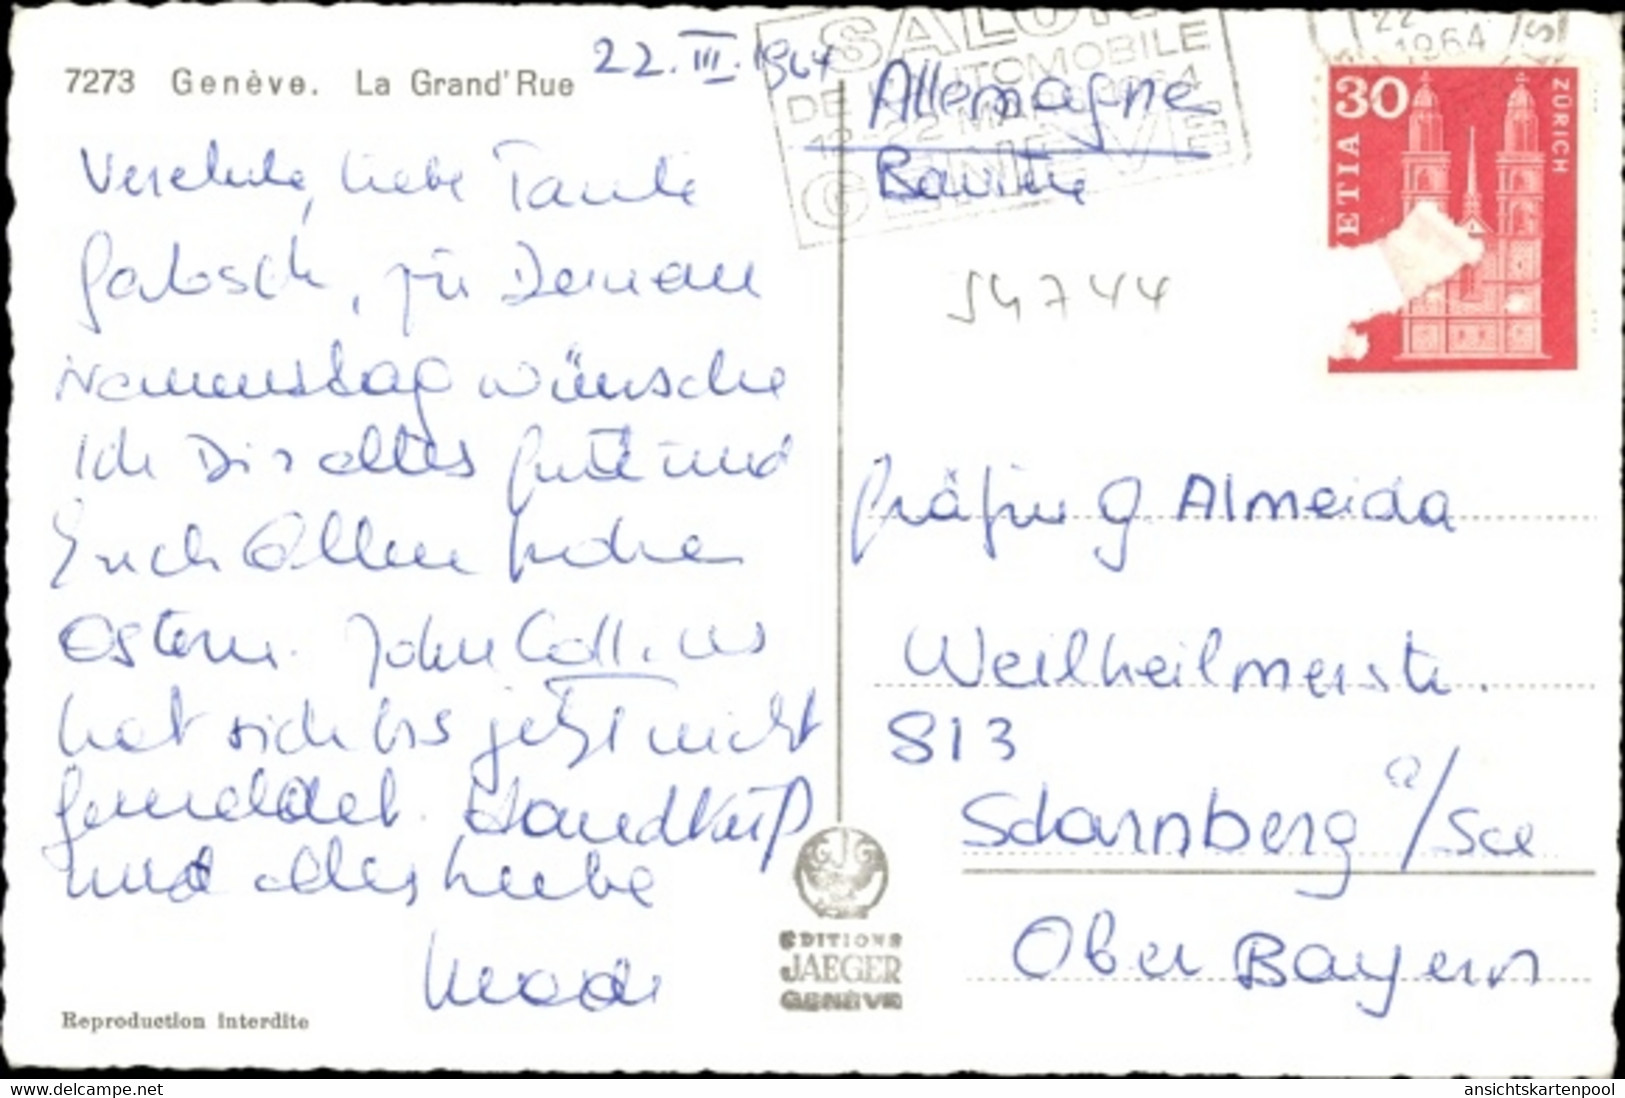 7273 Genève. La Grand'Rue
22. III. 1964
Verehrte, liebe Tante
Gabsch, zu Deinem
Namenstag wünsche
Ich Dir alles Gute und
Euch Allen frohe
Ostern. John Collins
hat sich bis jetzt nicht
gemeldet. Handkuß
und alles Liebe
Reproduction interdite
EDITIONS
JAEGER
GENÈVE
SALON
AUTOMOBILE
DE
12-22 MARS 1964
GENEVE
22
1964
30
HELVETIA
ZÜRICH
Allemagne
Bavière
54744
Gräfin G. Almeida
Weilheimerstr.
813
Starnberg a/See
Ober Bayern
delcampe.net
ansichtskartenpool